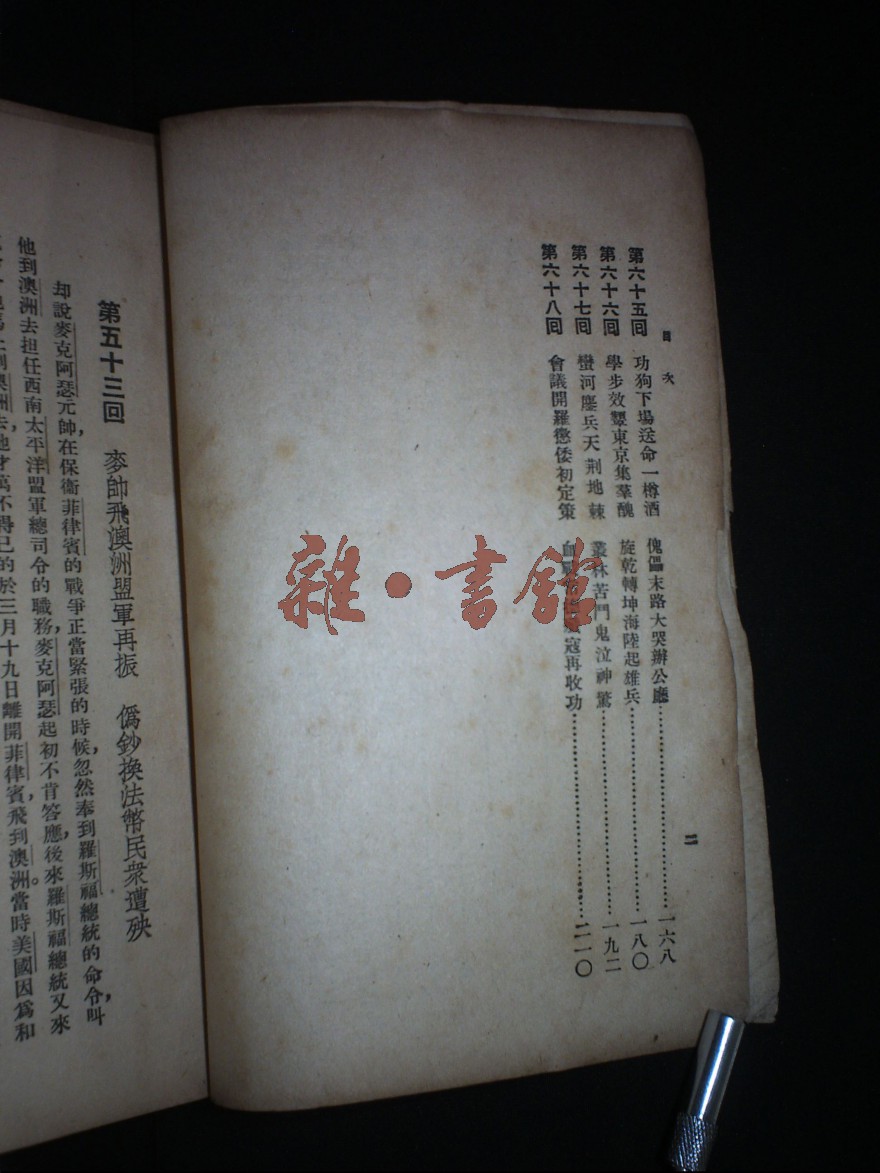 目次
二
第六十五回 功狗下場送命一樽酒 傀儡末路大哭辦公廳……………………一六八
第六十六回 學步效顰東京集羣醜 旋乾轉坤海陸起雄兵……………………一八〇
第六十七回 蠻河鏖兵天荆地棘 叢林苦鬥鬼泣神驚……………………一九二
第六十八回 會議開羅懲倭初定策 血寇再收功……………………二一〇
雜·書館
第五十三回 麥帥飛澳洲盟軍再振 僞鈔換法幣民衆遭殃
却說麥克阿瑟元帥,在保衞菲律賓的戰爭正當緊張的時候,忽然奉到羅斯福總統的命令,叫
他到澳洲去担任西南太平洋盟軍總司令的職務,麥克阿瑟起初不肯答應,後來羅斯福總統又來
馬上到澳洲去,他才萬不得已的於三月十九日離開菲律賓,飛到澳洲。當時美國因爲和